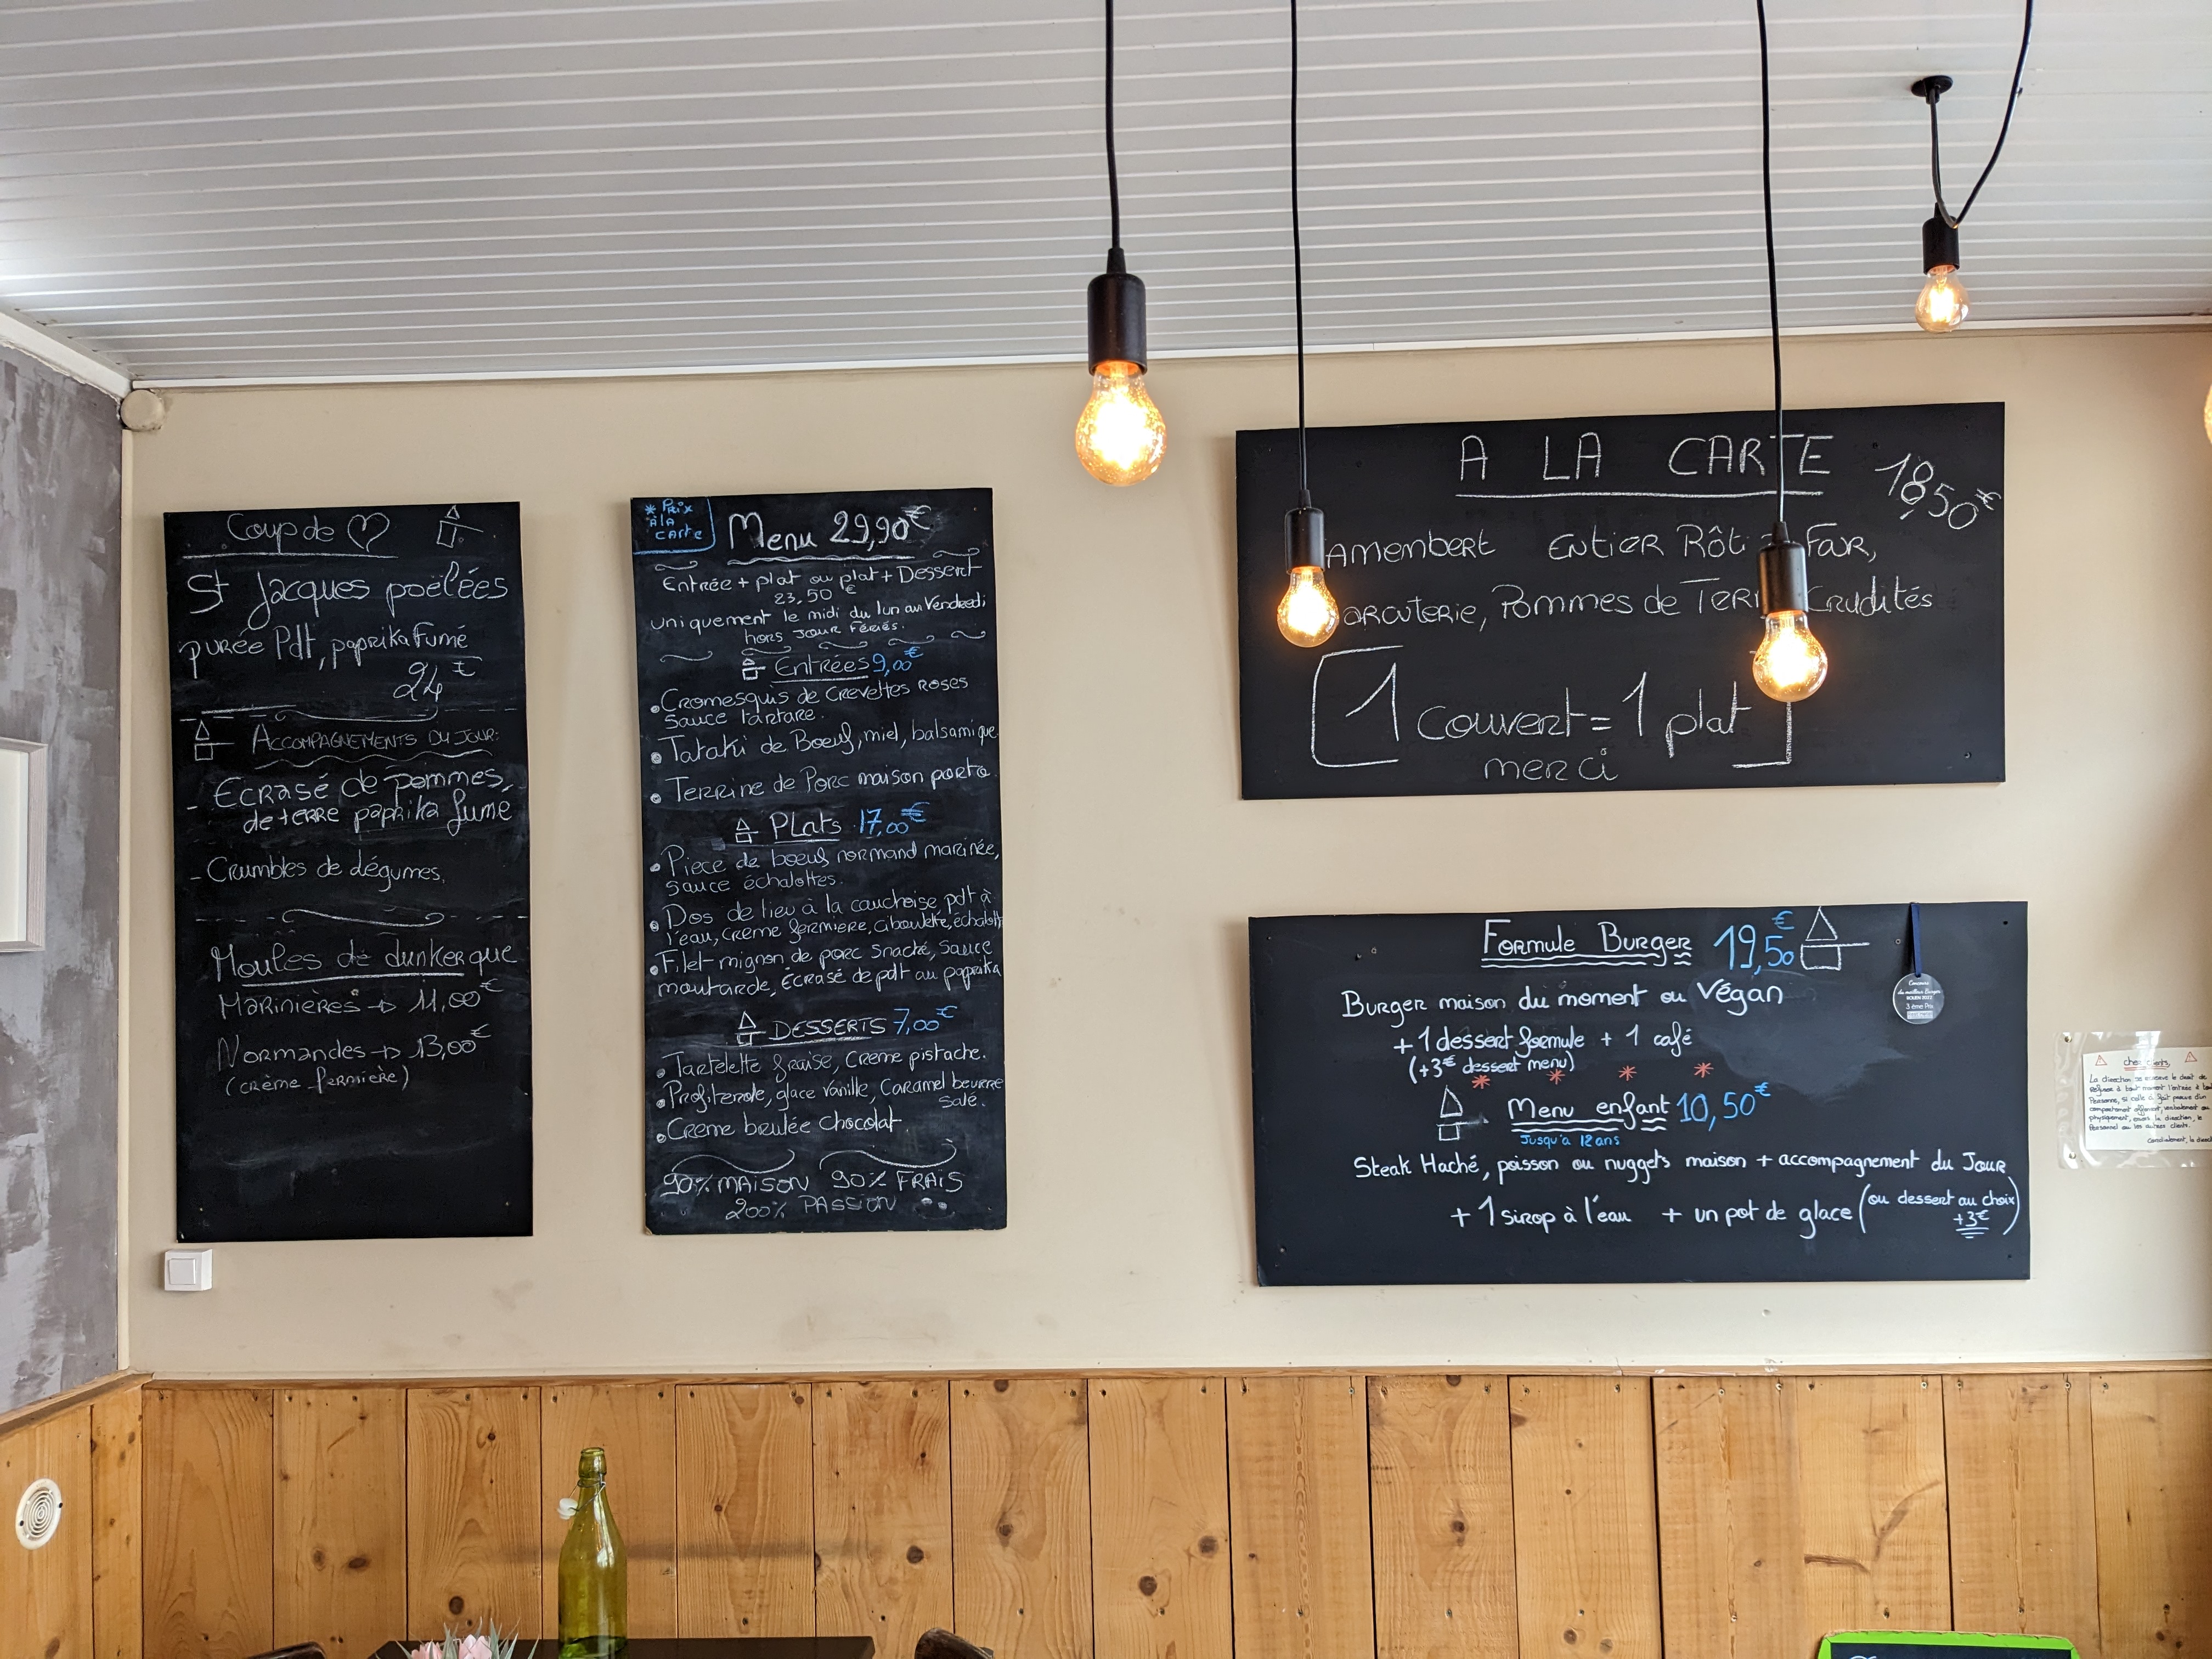 Coup de
St Jacques poëlées
purée Pdt, paprika fumé
24€
Accompagnements du jour:
- Ecrasé de pommes,
de terre paprika fumé
- Crumbles de légumes,
Moules de dunkerque
Marinières → 11,00€
Normandes → 13,00€
(crème fermière)
* Prix
à la
carte
Menu 29,90€
Entrée + plat ou plat + Dessert
23,50€
uniquement le midi du lun au Vendredi
hors jour fériés.
Entrées 9,00€
• Cromesquis de Crevettes Roses
sauce tartare.
• Tataki de Boeuf, miel, balsamique
• Terrine de Porc maison porto
Plats 17,00€
• Piece de boeuf normand marinée,
sauce échalottes.
• Dos de lieu à la cauchoise pdt à
l'eau, creme fermiere, ciboulette, échalott
• Filet-mignon de porc snacké, sauce
moutarde, écrasé de pdt au paprika
Desserts 7,00€
• Tartelette fraise, creme pistache.
• Profiterole, glace vanille, Caramel beurre
salé.
• Creme brulée Chocolat.
90% MAISON 90% FRAIS
200% PASSION
A LA CARTE
18,50€
amembert Entier Rôt Four,
arcuterie, Pommes de Terr Crudités
[1 couvert = 1 plat]
merci
Formule Burger 19,50€
Burger maison du moment ou végan
+ 1 dessert formule + 1 café
(+3€ dessert menu)
Menu enfant 10,50€
Jusqu'a 12 ans
Steak Haché, poisson ou nuggets maison + accompagnement du Jour
+ 1 sirop à l'eau + un pot de glace (ou dessert au choix
+3€)
Concours
du meilleur Burger
ROUEN 2022
3 ème Prix
clients,
La direction se réserve le droit de
Refuser à tout moment l'entrée à
Personne, si celle ci fait preuve d'un
comportement verbalement ou
physiquement, envers la direction, le
Personnel ou les autres clients.
Cordialement, la direct